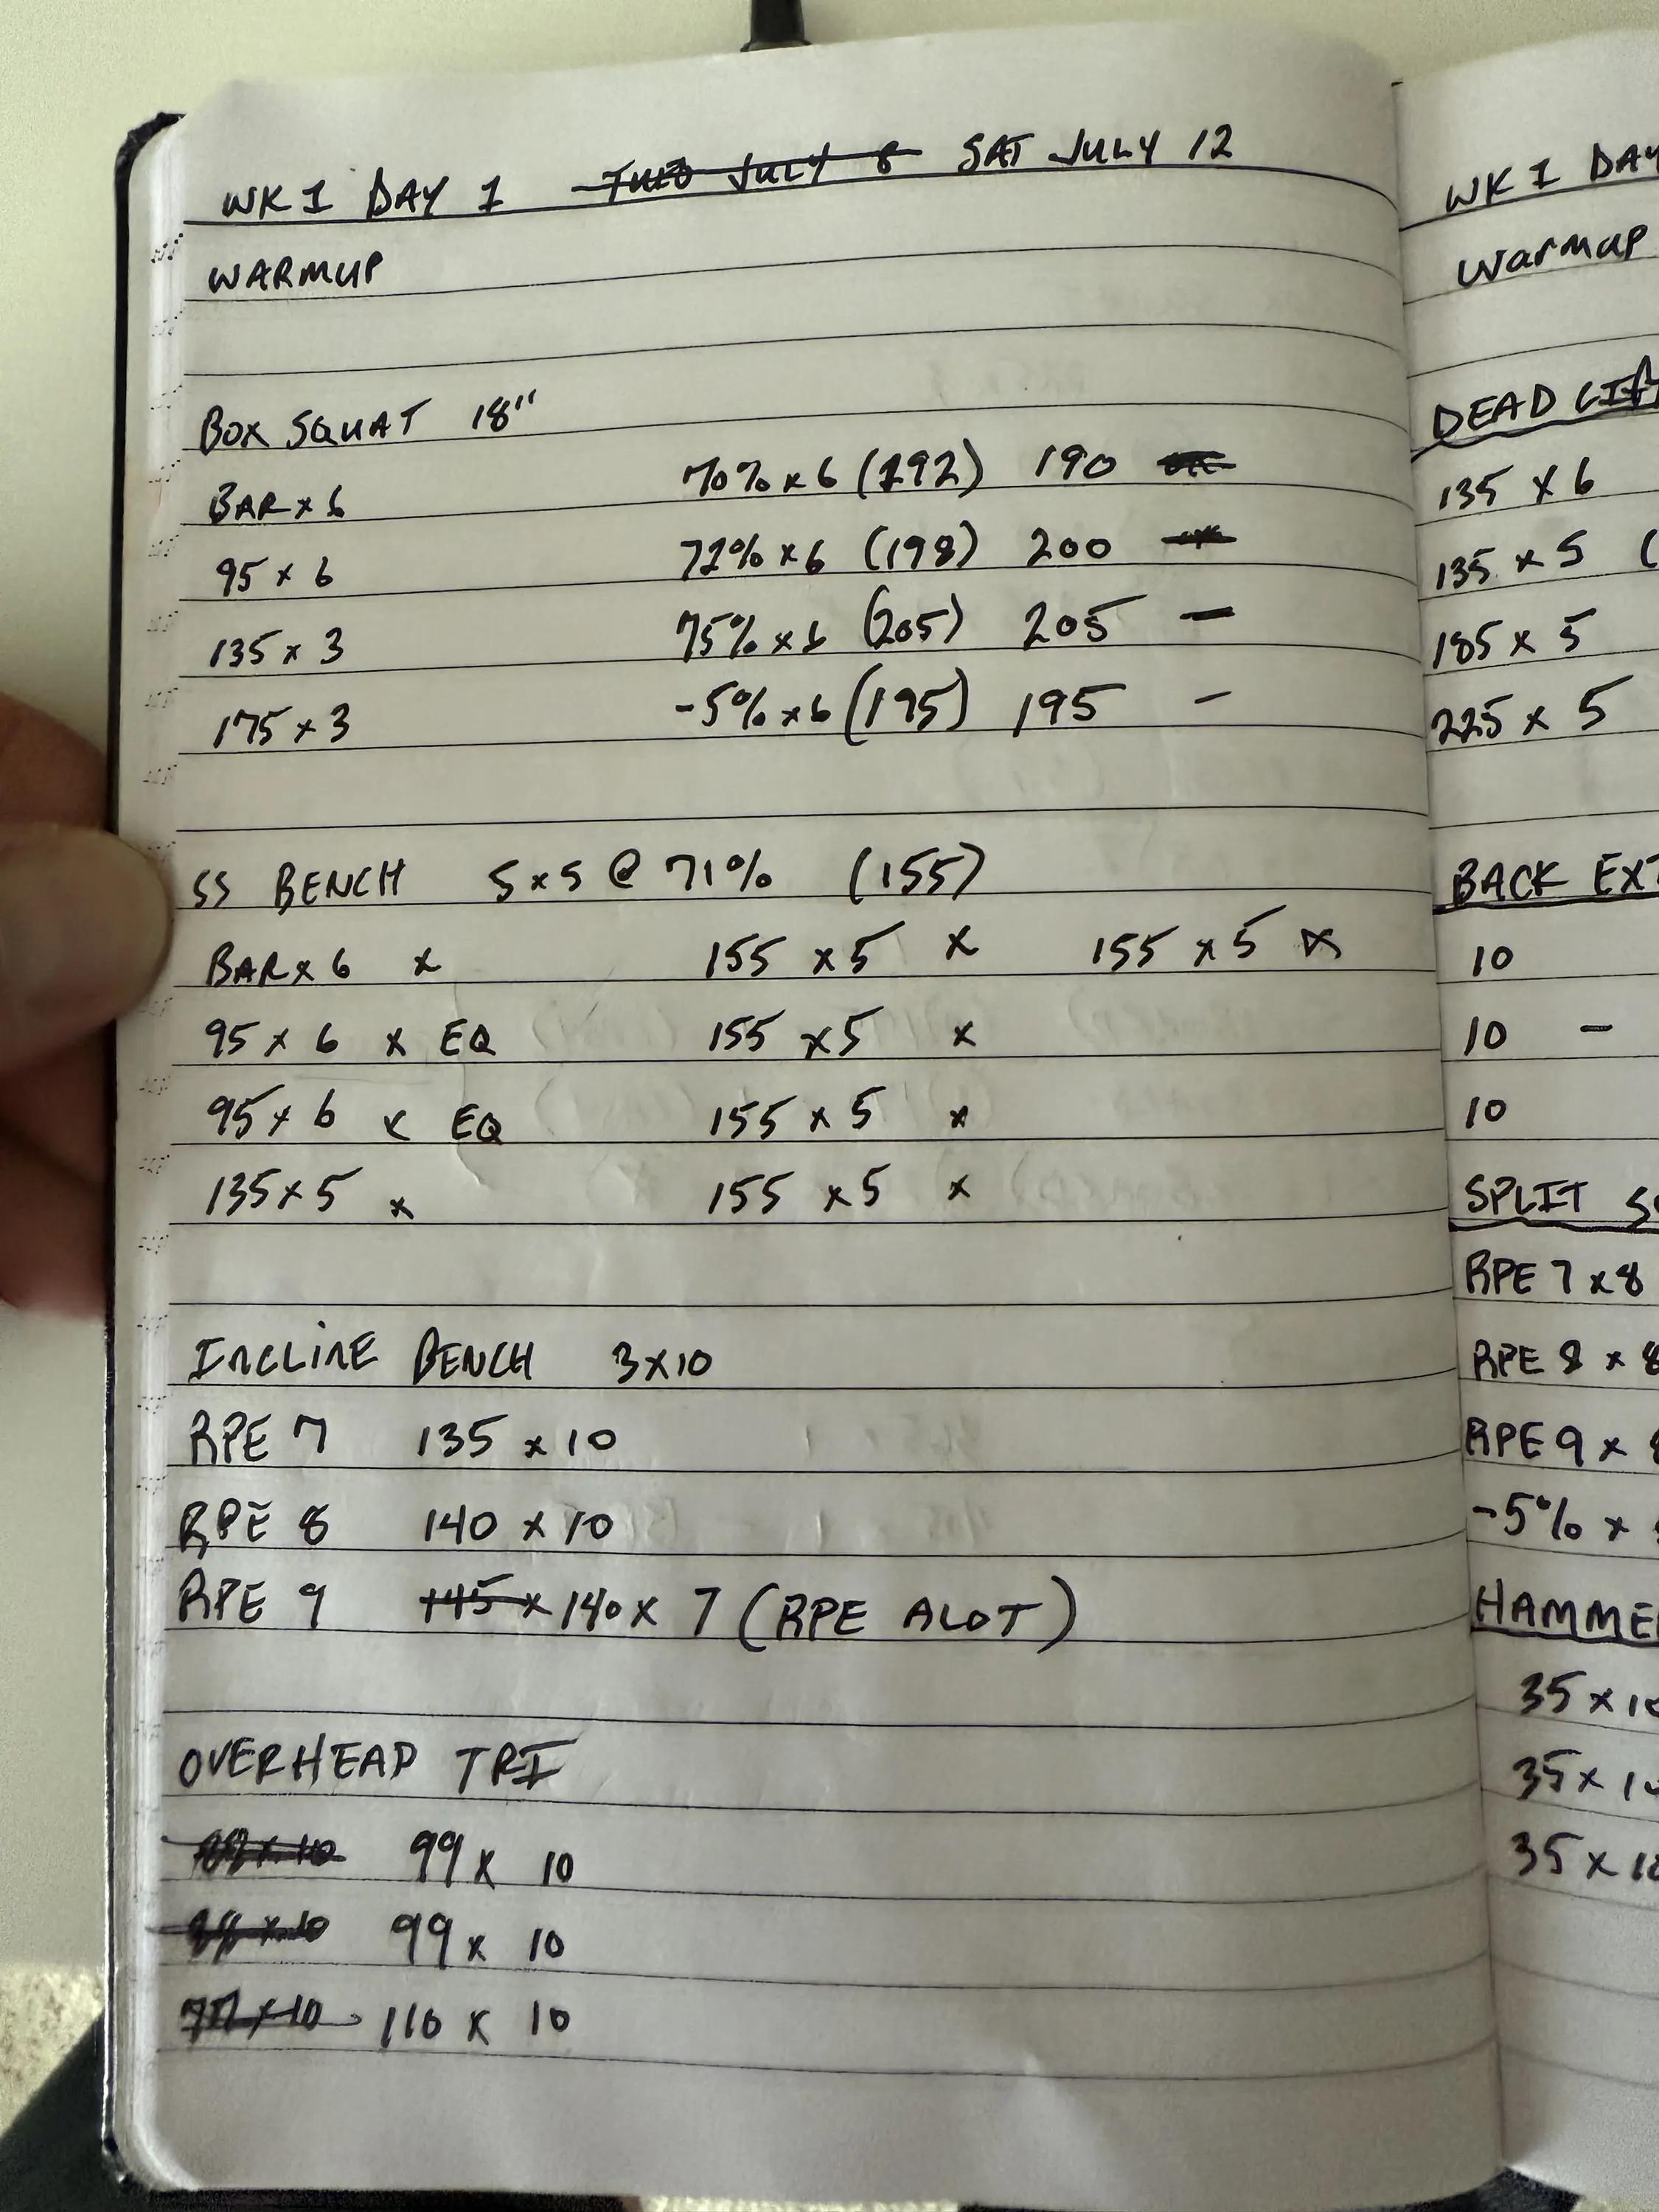 WK 1 DAY 1 JULY 8 SAT JULY 12
WARMUP
BOX SQUAT 18"
BAR x 6 70% x 6 (192) 190
95 x 6 72% x 6 (198) 200
135 x 3 75% x 6 (205) 205 —
175 x 3 -5% x 6 (195) 195 -
SS BENCH 5x5 @ 71% (155)
BAR x 6 x 155 x 5 x 155 x 5 x
95 x 6 x EQ 155 x 5 x
95 x 6 x EQ 155 x 5 x
135 x 5 x 155 x 5 x
INCLINE BENCH 3x10
RPE 7 135 x 10
RPE 8 140 x 10
RPE 9 145 x 140 x 7 (RPE ALOT)
OVERHEAD TRI
99 x 10
99 x 10
110 x 10
WK 1 DAY
Warmup
DEADLIF
135 x 6
135 x 5 (
185 x 5
225 x 5
BACK EXT
10
10 -
10
SPLIT
RPE 7 x 8
RPE 8 x 8
RPE 9 x 8
-5% x
HAMME
35 x 10
35 x 10
35 x 10